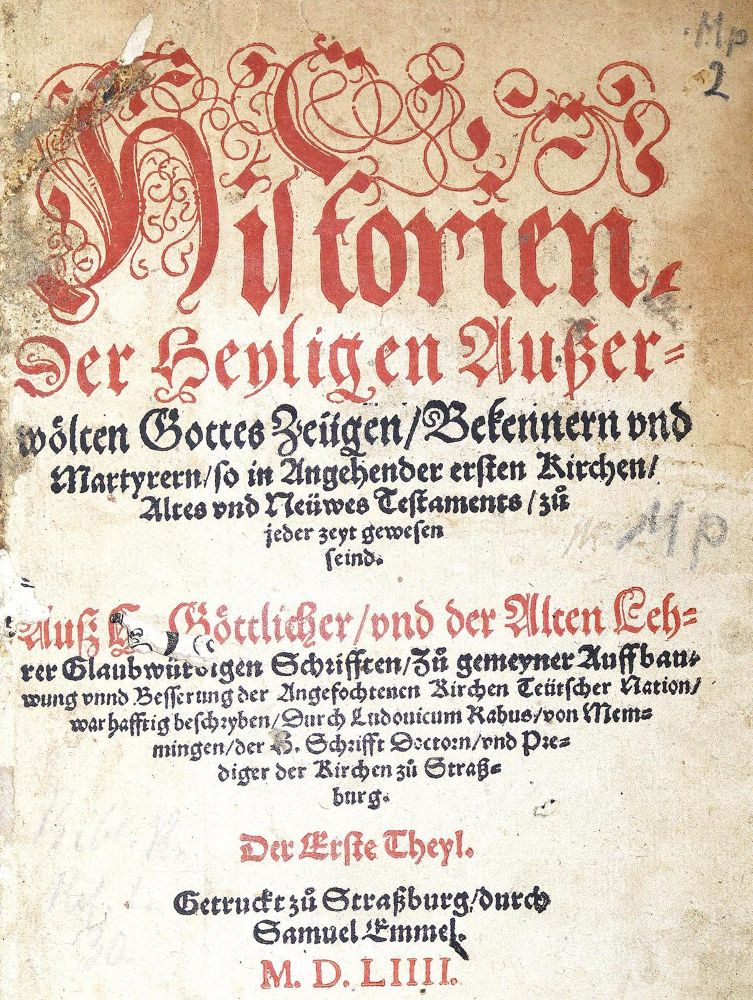 Mp
2
Historien.
Der Heyligen Außer=
wölten Gottes Zeügen/Bekennern vnd
Martyrern/so in Angehender ersten Kirchen/
Altes vnd Neüwes Testaments/zů
jeder zeyt gewesen
seind.
Mp
Auß H. Göttlicher/vnd der Alten Leh=
rer Glaubwürdigen Schrifften/Zů gemeyner Auffbau=
wung vnnd Besserung der Angefochtenen Kirchen Teütscher Nation/
warhafftig beschryben/Durch Ludouicum Rabus/von Mem=
mingen/der H. Schrifft Doctorn/vnd Pre=
diger der Kirchen zů Straß=
burg.
Der Erste Theyl.
Getruckt zů Straßburg/durch
Samuel Emmel.
M. D. LIIII.